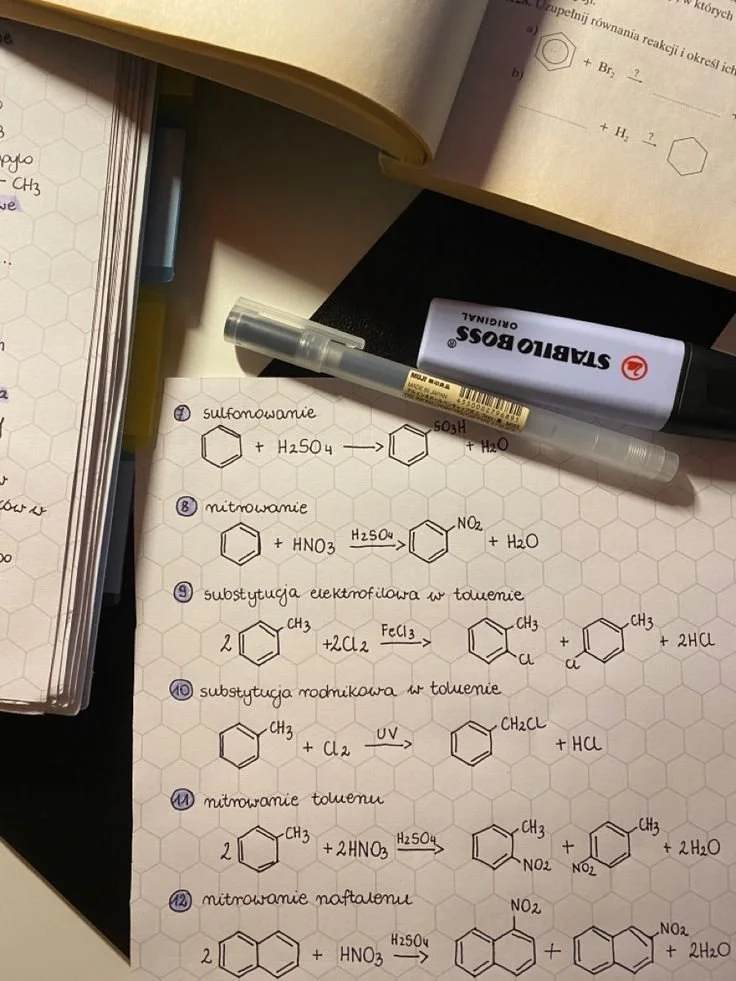 , w których
Uzupełnij równania reakcji i określ ich
a) + Br₂ ?
b) + H₂ ?
pylo
- CH3
we
STABILO BOSS®
ORIGINAL
MUJI
MADE IN JAPAN
7 sulfonowanie
+ H2SO4 → SO3H + H2O
8 nitrowanie
+ HNO3 H2SO4 → NO2 + H2O
9 substytucja elektrofilowa w toluenie
2 CH3 +2Cl2 FeCl3 → CH3 Cl + CH3 Cl + 2HCl
10 substytucja rodnikowa w toluenie
CH3 + Cl2 UV → CH2Cl + HCl
11 nitrowanie toluenu
2 CH3 + 2HNO3 H2SO4 → CH3 NO2 + CH3 NO2 + 2H2O
12 nitrowanie naftalenu
2 + HNO3 H2SO4 → NO2 + NO2 + 2H2O